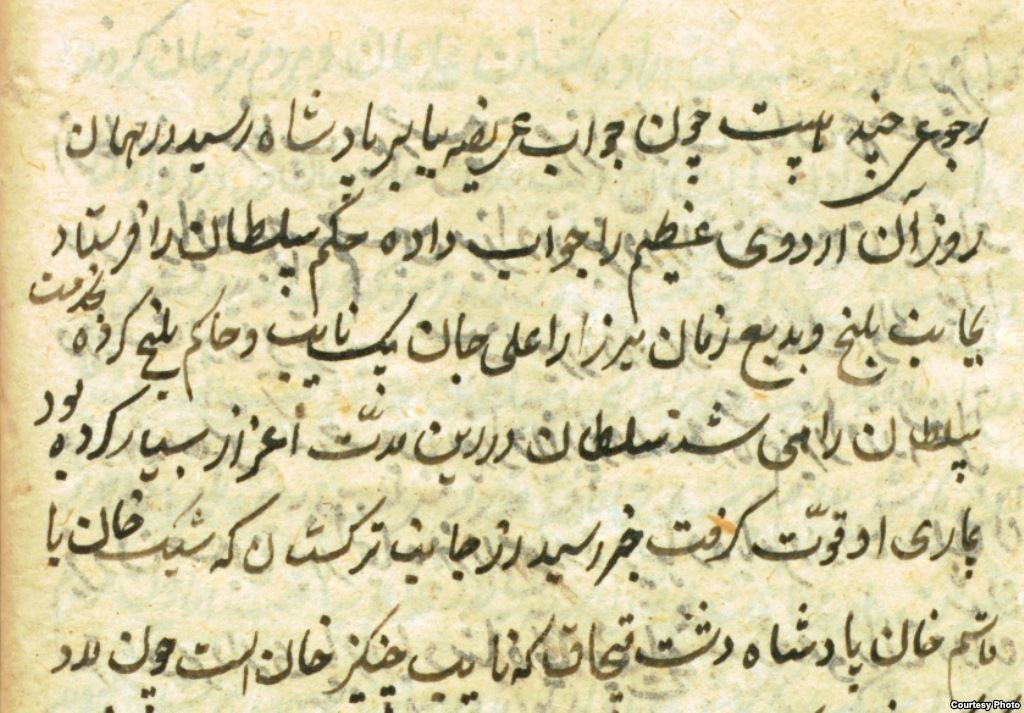 رجوعی چند هست چون جواب عریضه ببابر پادشاه رسید در همان
روز آن اردوی عظیم را جواب داده حکم سلطان را فرستاد
بجانب بلخ و بدیع زمان میرزا را علی جان بیک نایب و حاکم بلخ کرده بخدمت
سلطان راهی شد سلطان درین مدت اعزاز بسیار کرده بود
بماری او قوّت گرفت خبر رسید از جانب ترکستان که شیبک خان با
قاسم خان پادشاه دشت قبچاق که نایب چنکیز خان است چون
Courtesy Photo